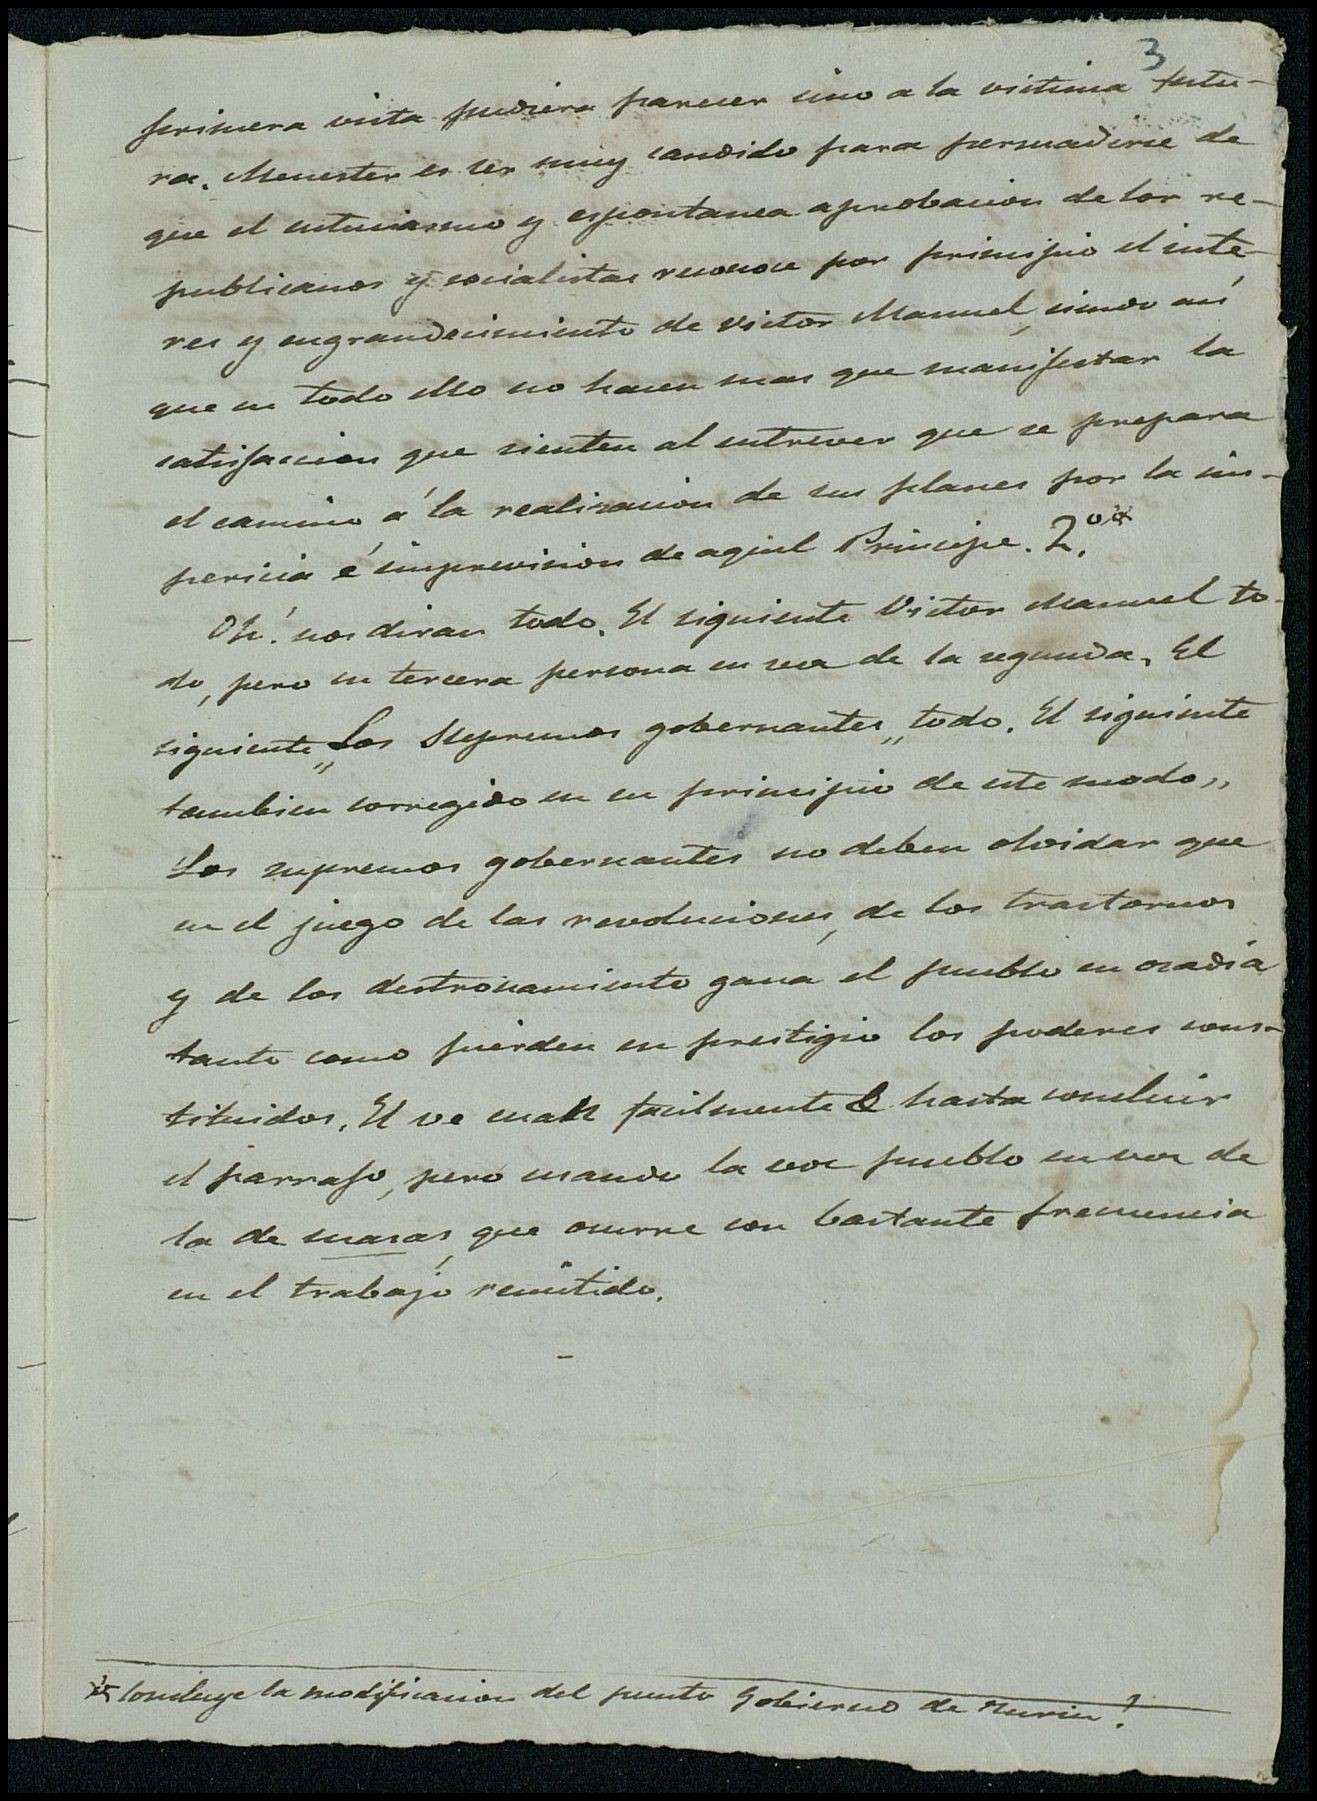 3
primera vista pudiera parecer sino a la victima futu-
ra. Menester es ser muy candido para persuadirse de
que el entusiasmo y espontanea aprobacion de los re-
publicanos y socialistas reconoce por principio el inte-
res y engrandecimiento de Victor Manuel, siendo asi
que en todo ello no hacen mas que manifestar la
satisfaccion que sienten al entrever que se prepara
el camino á la realisacion de sus planes por la im-
pericia é imprevision de aquel Principe. 2.
Oh! nos diran todo. El siguiente Victor Manuel to-
do, pero en tercera persona en vez de la segunda. El
siguiente „Los Supremos gobernantes„ todo. El siguiente
tambien corregido en su principio de este modo„
Los supremos gobernantes no deben olvidar que
en el juego de las revoluciones, de los trastornos
y de los destronamiento gana el pueblo en osadía
tanto como pierden en prestigio los poderes cons-
tituidos. El ve facilmente & hasta concluir
el parrafo, pero usando la voz pueblo en vez de
la de masas, que ocurre con bastante frecuencia
en el trabajo remitido.
Concluye la modificacion del punto Gobierno de Turin?